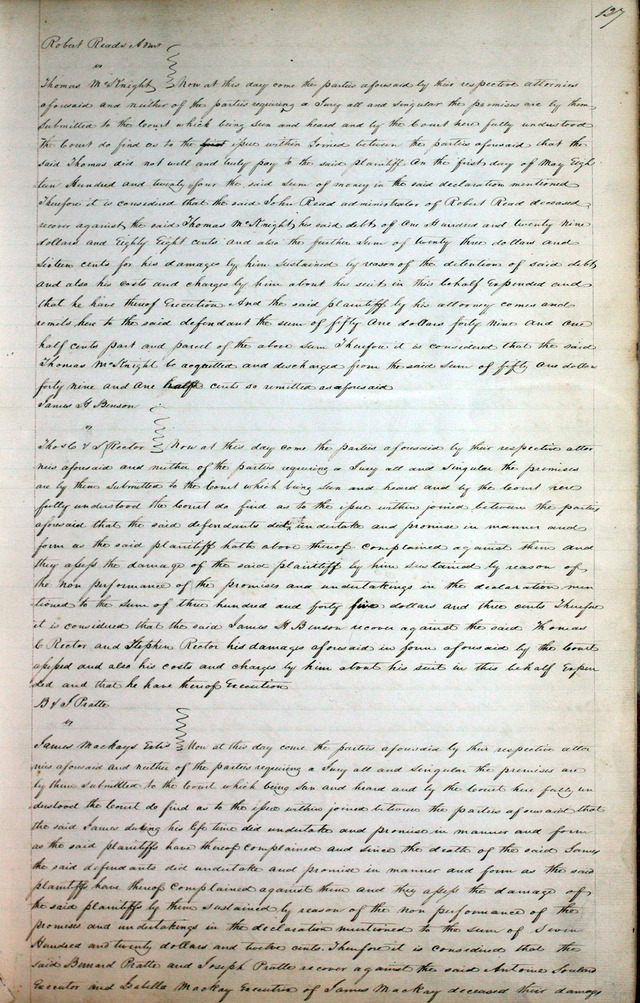 137
Robert Reads Admr
vs
Thomas McKnight Now at this day come the parties aforesaid by their respective attornies
aforesaid and neither of the parties requiring a Jury all and singular the premises are by them
submitted to the Court which being seen and heard and by the Court here fully understood
the Court do find as to the first issue within Joined between the parties aforesaid that the
said Thomas did not well and truly pay to the said plaintiff On the first day of May Eigh
teen Hundred and twenty four the said Sum of money in the said declaration mentioned
Therefore it is considered that the said John Read administrator of Robert Read deceased
recover against the said Thomas McKnight his said debt of One Hundred and twenty Nine
dollars and Eighty Eight cents and also the further Sum of twenty three dollars and
Sixteen cents for his damages by him Sustained by reason of the detention of said debt
and also his costs and charges by him about his suit in this behalf Expended and
that he have thereof Execution And the said plaintiff by his attorney comes and
remits here to the said defendant the sum of fifty One dollars forty Nine and One
half cents part and parcel of the above Sum Therefore it is considered that the said
Thomas McKnight be acquitted and discharged from the said Sum of fifty One dollars
forty nine and One half cents so remitted as aforesaid
James H Benson
vs
Thos C & S Rector Now at this day come the parties aforesaid by their respective attor
neis aforesaid and neither of the parties requiring a Jury all and Singular the premises
are by them Submitted to the Court which being Seen and heard and by the Court here
fully understood the Court do find as to the issue within joined between the parties
aforesaid that the said defendants did undertake and promise in manner and
form as the said plaintiff hath above thereof complained against them and
they assess the damage of the said plaintiff by him sustained by reason of
the Non performance of the promises and undertakings in the declaration men
tioned to the Sum of three hundred and forty five dollars and three cents Therefore
it is considered that the said James H Benson recover against the said Thomas
C Rector and Stephen Rector his damages aforesaid in form aforesaid by the Court
assessed and also his costs and charges by him about his suit in this behalf Expen
ded and that he have thereof Execution
B & J Pratte
vs
James Mackays Exrs Now at this day come the parties aforesaid by their respective attor
nies aforesaid and neither of the parties requiring a Jury all and Singular the premises are
by them submitted to the Court which being Seen and heard and by the Court here fully un
derstood the Court do find as to the issue within joined between the parties aforesaid that
the said James during his life time did undertake and promise in manner and form
as the said plaintiffs have thereof complained and since the death of the said James
the said defendants did undertake and promise in manner and form as the said
plaintiffs have thereof complained against them and they assess the damage of
the said plaintiffs by them sustained by reason of the non performance of the
promises and undertakings in the declaration mentioned to the sum of Seven
Hundred and twenty dollars and twelve cents. Therefore it is considered that the
said Bernard Pratte and Joseph Pratte recover against the said Antoine Soulard
Executor and Isabella Mackay Executrix of James Mackay deceased their damages